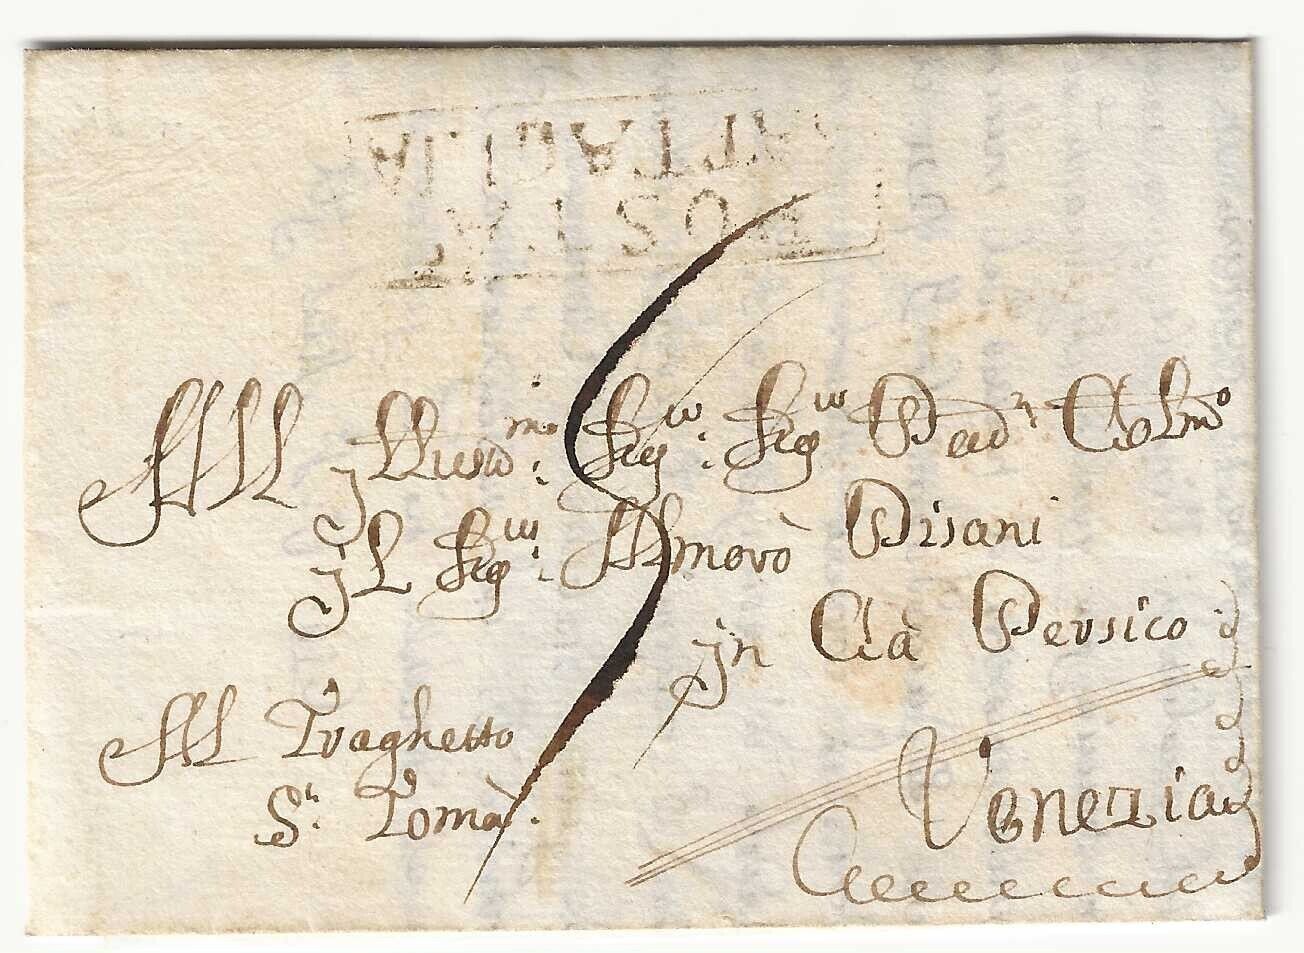 POSTA
BATTAGLIA
All Illustrmo: Sigr: Sigr Pron Colmo
il Sigr: Almorò Pisani
in Cà Persico
Al Traghetto
Sn: Tomà.
Venezia